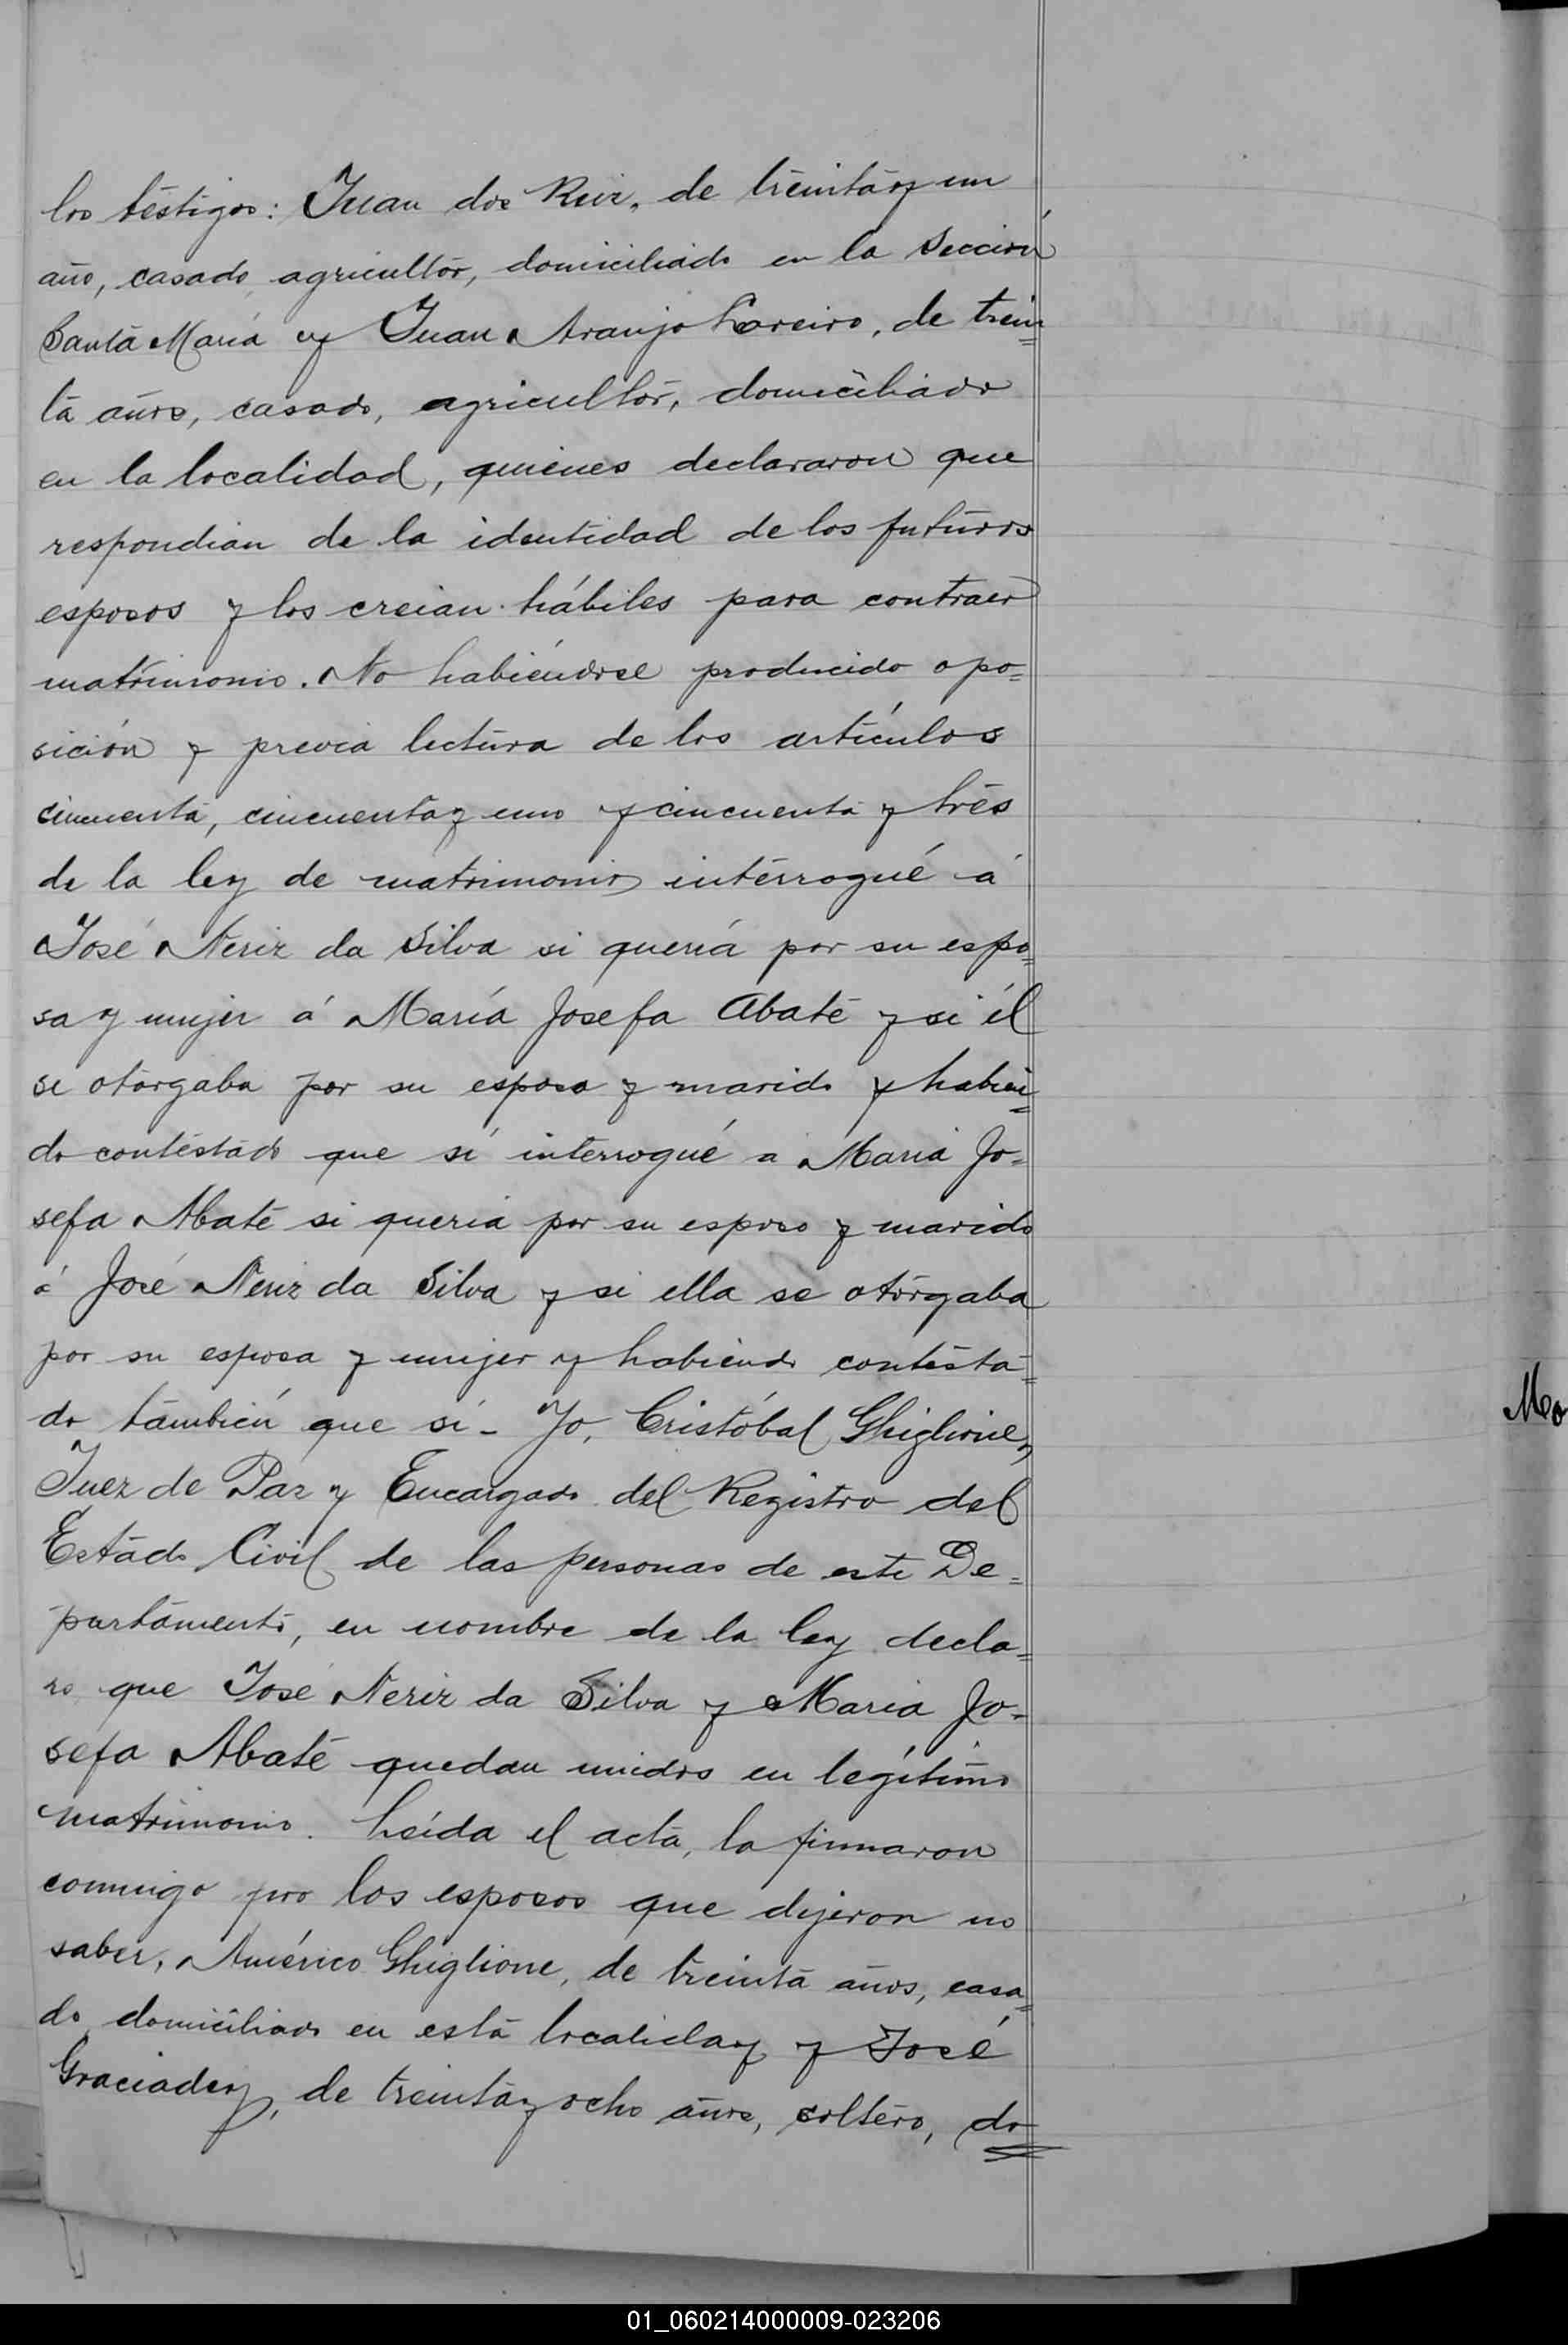 los testigos: Juan dos Ruiz, de treinta y un
año, casado, agricultor, domiciliado en la Sección
Santa María y Juan Araujo Loreiro, de trein=
ta años, casado, agricultor, domiciliado
en la localidad, quienes declararon que
respondian de la identidad de los futuros
esposos y los creian hábiles para contraer
matrimonio. No habiéndose producido opo=
sición y previa lectura de los artículos
cincuenta, cincuenta y uno y cincuenta y tres
de la ley de matrimonio interrogué á
José Neriz da Silva si quería por su espo=
sa y mujer á María Josefa Abate y si él
se otorgaba por su esposo y marido y habien=
do contestado que sí interrogué a Maria Jo=
sefa Abate si queria por su esposo y marido
á José Neriz da Silva y si ella se otorgaba
por su esposa y mujer y habiendo contesta=
do también que sí - Yo, Cristóbal Ghiglione,
Juez de Paz y Encargado del Registro del
Estado Civil de las personas de este De=
partamento, en nombre de la ley decla=
ro que José Neriz da Silva y Maria Jo=
sefa Abate quedan unidos en legítimo
matrimonio. Leída el acta, la firmaron
conmigo pro los esposos que dijeron no
saber, Américo Ghiglione, de treinta años, casa=
do, domiciliado en esta localiday y José
Graciadey, de treinta y ocho años, soltero, do=
Mo
01_060214000009-023206